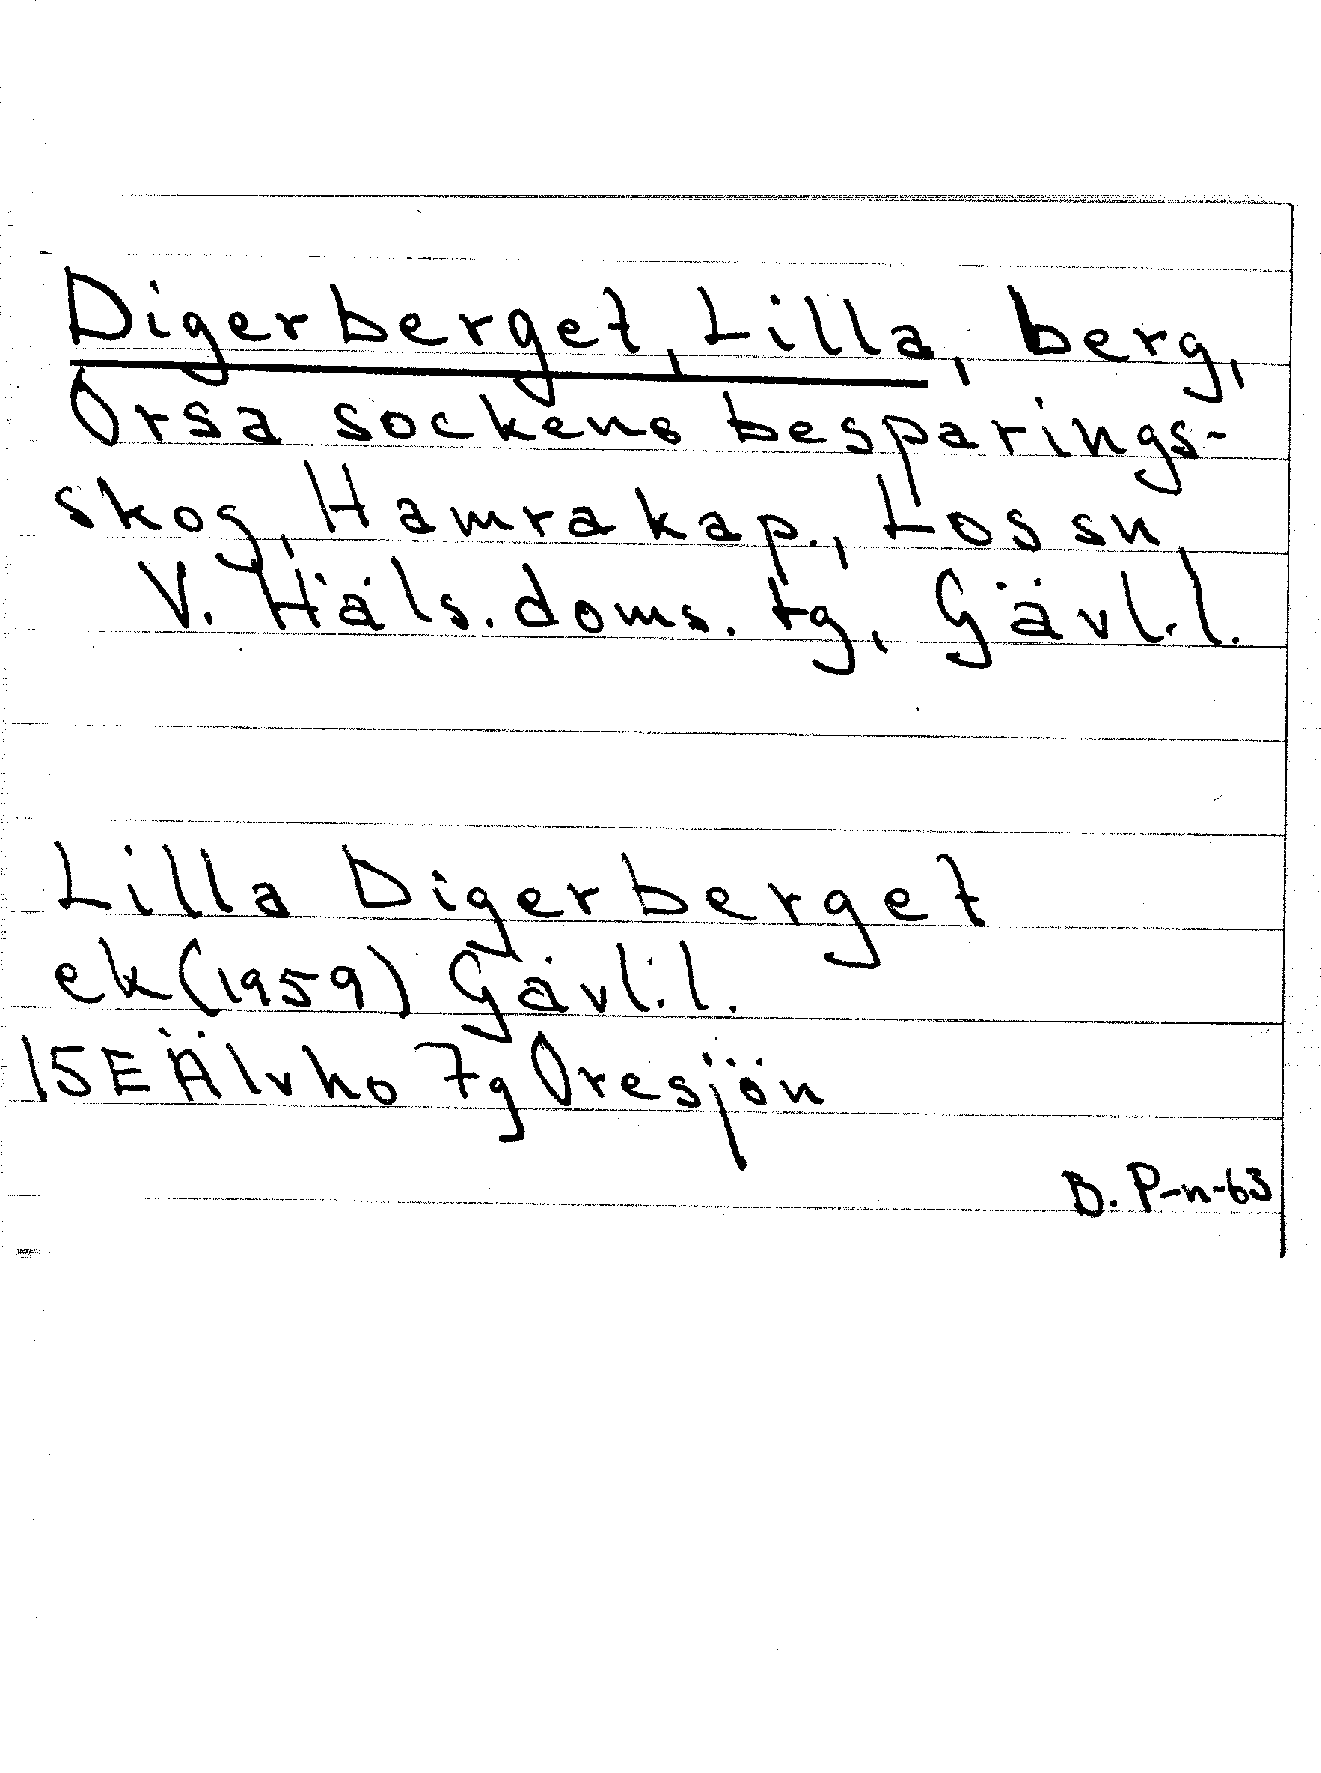 Digerberget, Lilla, berg,
Orsa sockens besparings-
skog, Hamra kap., Los sn,
V. Häls. doms. tg, Gävl.l.
Lilla Digerberget
ek (1959) Gävl.l.
15E Älvho 7g Oresjön
B. P-n-63